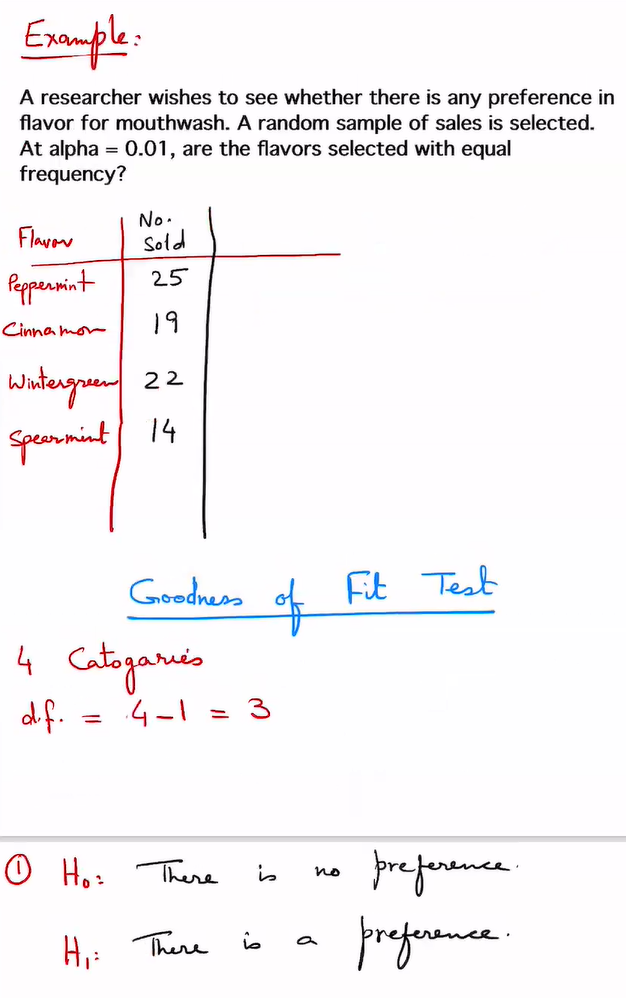 Example:
A researcher wishes to see whether there is any preference in
flavor for mouthwash. A random sample of sales is selected.
At alpha = 0.01, are the flavors selected with equal
frequency?
Flavor No. Sold
Peppermint 25
Cinnamon 19
Wintergreen 22
Spearmint 14
Goodness of Fit Test
4 Catogaries
d.f. = 4-1 = 3
① H₀: There is no preference.
H₁: There is a preference.